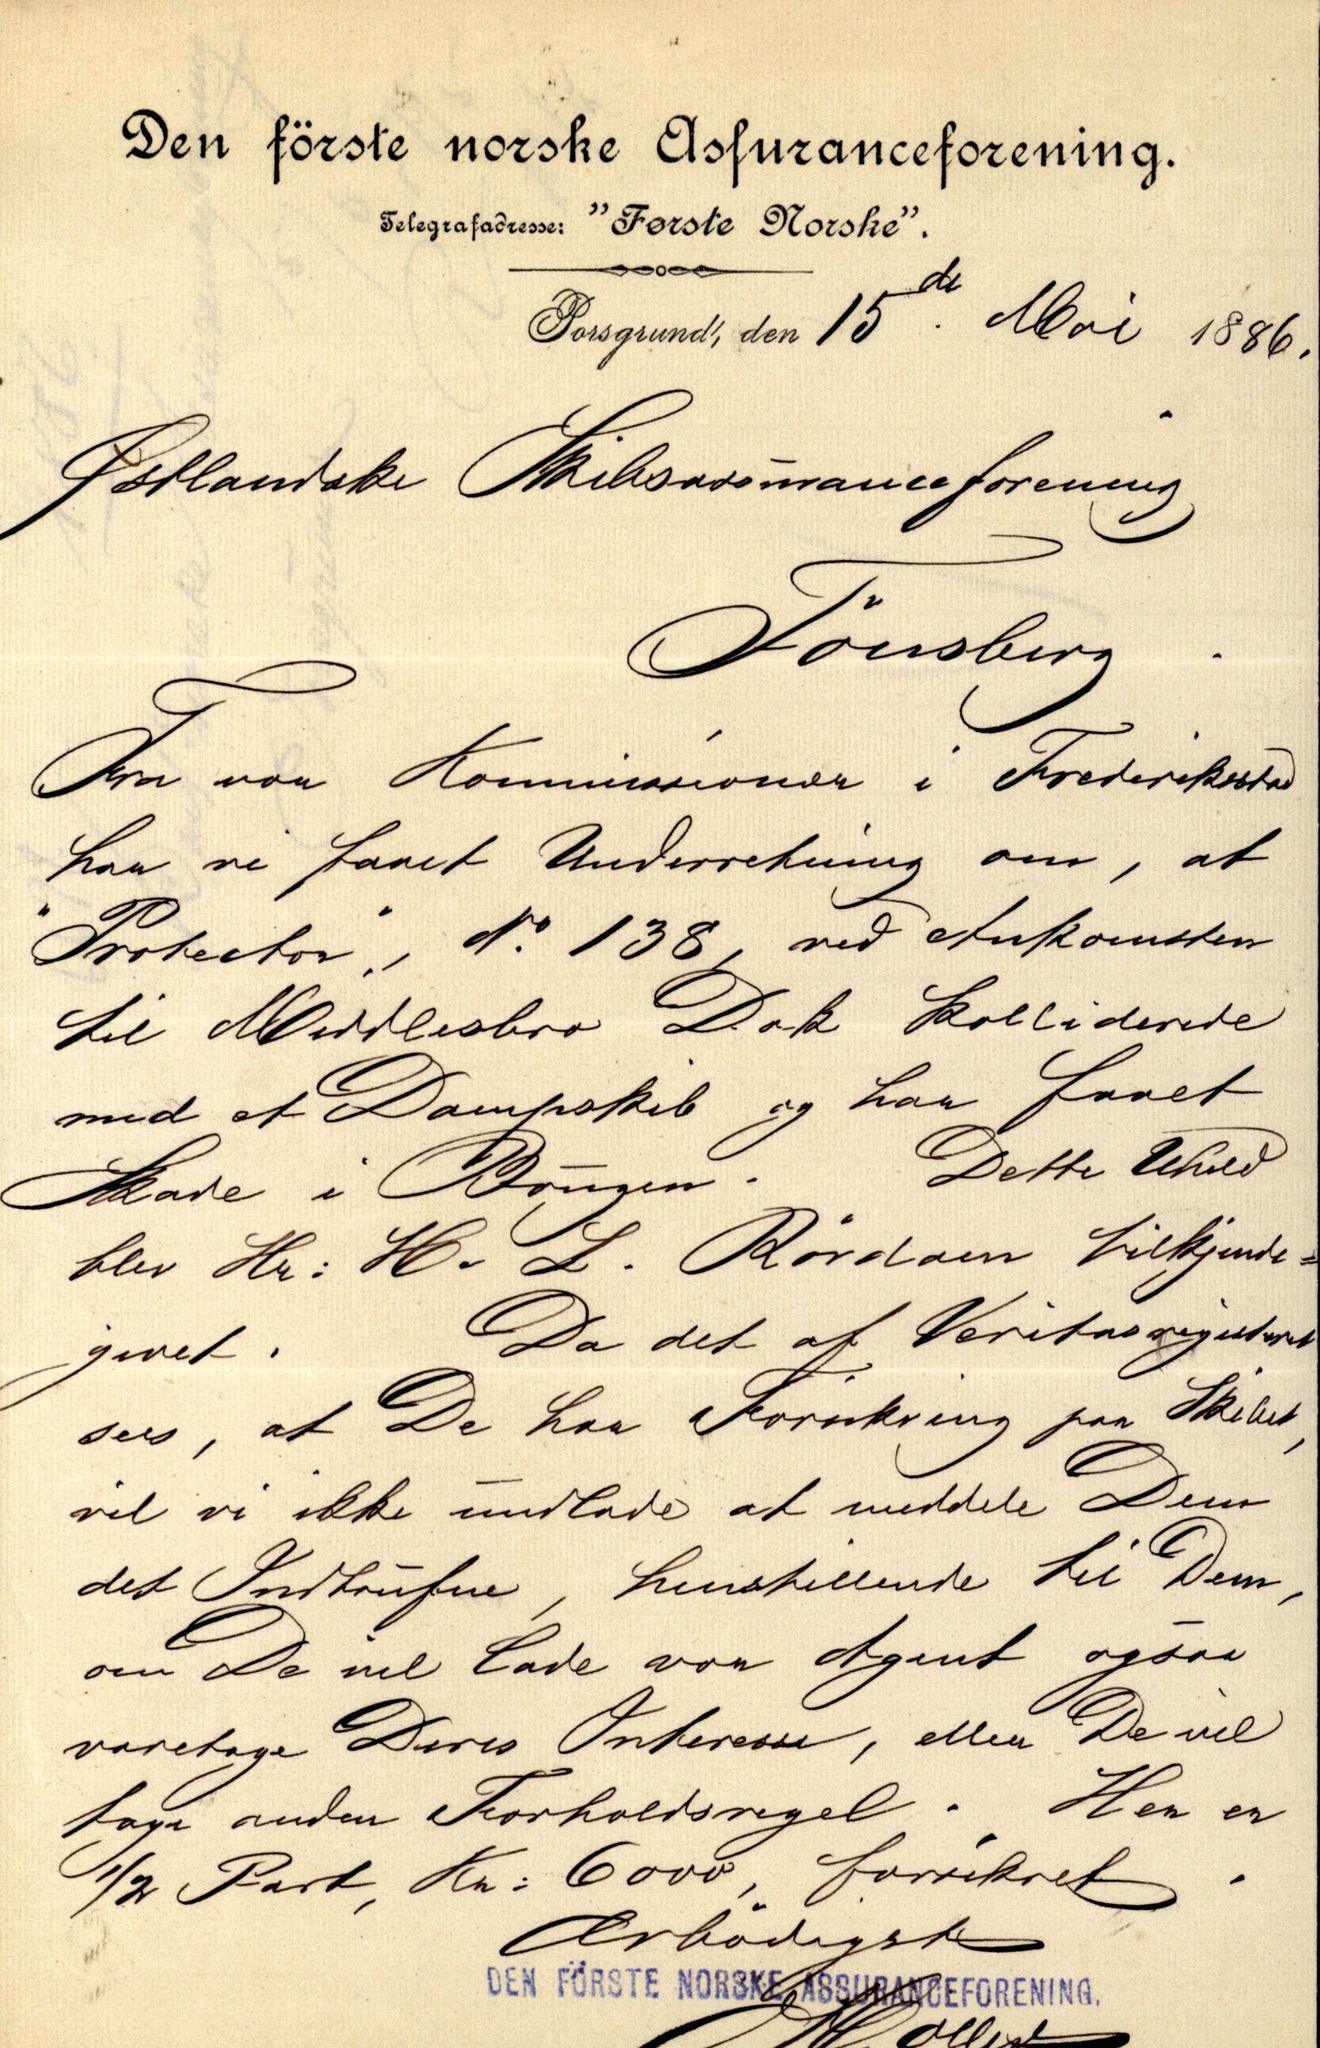 Den förste norske Assuranceforening.
Telegrafadresse: "Første Norske".
Porsgrund, den 15de Mai 1886.
Østlandske Skibsassuranceforening
Tönsberg.
Fra vor Kommissionær i Frederiksstad
har vi faaet Underretning om, at
"Protector", No. 138, ved Ankomsten
til Middlesbro Dok kolliderede
med et Dampskib og har faaet
Skade i Bougen. Dette Uheld
blev Hr: H. L. Rördam tilkjende=
givet. Da det af Veritasregisteret
sees, at De har Forsikring paa Skibet,
vil vi ikke undlade at meddele Dem
det Indtrufne, henstillende til Dem,
om De vil lade vor Agent ogsaa
varetage Deres Interesse, eller De vil
tage anden Forholdsregel. Her er
1/2 Part, Kr: 6000, forsikret.
Ærbödigst
DEN FÖRSTE NORSKE ASSURANCEFORENING.